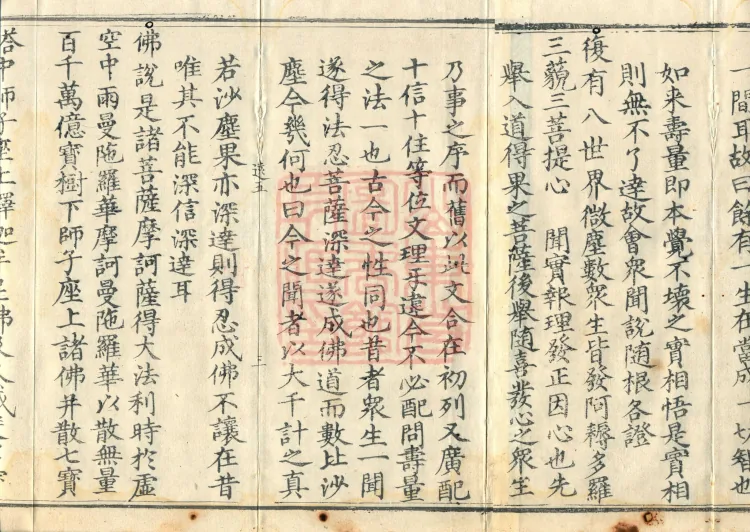 一間耳故曰餘有一生在當成一切智也
如来壽量即本覺不壞之實相悟是實相
則無不了達故會衆聞說随根各證
復有八世界微塵數衆生皆發阿耨多羅
三藐三菩提心 聞實報理發正因心也先
舉入道得果之菩薩後舉随喜發心之衆生
乃事之序而舊以此文合在初列又廣配
十信十住等位文理乎違今不必配問壽量
之法一也古今之性同也昔者衆生一聞
遂得法忍菩薩深達遂成佛道而數比沙
塵今幾何也曰今之聞者以大千計之真
遠五
三
若沙塵果亦深達則得忍成佛不讓在昔
唯其不能深信深達耳
佛說是諸菩薩摩訶薩得大法利時於虛
空中雨曼陁羅華摩訶曼陁羅華以散無量
百千萬億寶樹下師子座上諸佛并散七寶
塔中師子座上釋迦牟尼佛及久滅度